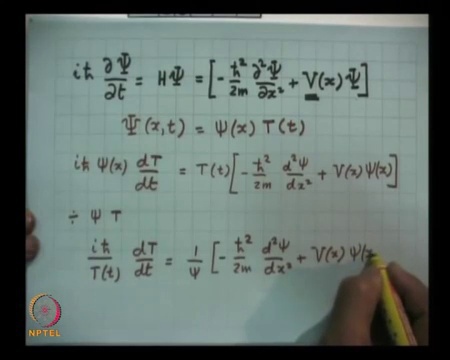 iħ ∂Ψ/∂t = HΨ = [-ħ²/2m ∂²Ψ/∂x² + V(x)Ψ]
Ψ(x,t) = ψ(x) T(t)
iħ ψ(x) dT/dt = T(t)[-ħ²/2m d²ψ/dx² + V(x)ψ(x)]
÷ ψ T
iħ/T(t) dT/dt = 1/ψ [-ħ²/2m d²ψ/dx² + V(x) ψ(x
NPTEL